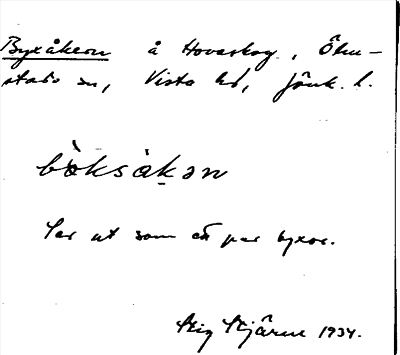 Byxåkern å Hovaskog, Öln-
stads sn, Vista hd, Jönk. l.
bòksàkən
Ser ut som ett par byxor.
Stig Stjärne 1934.